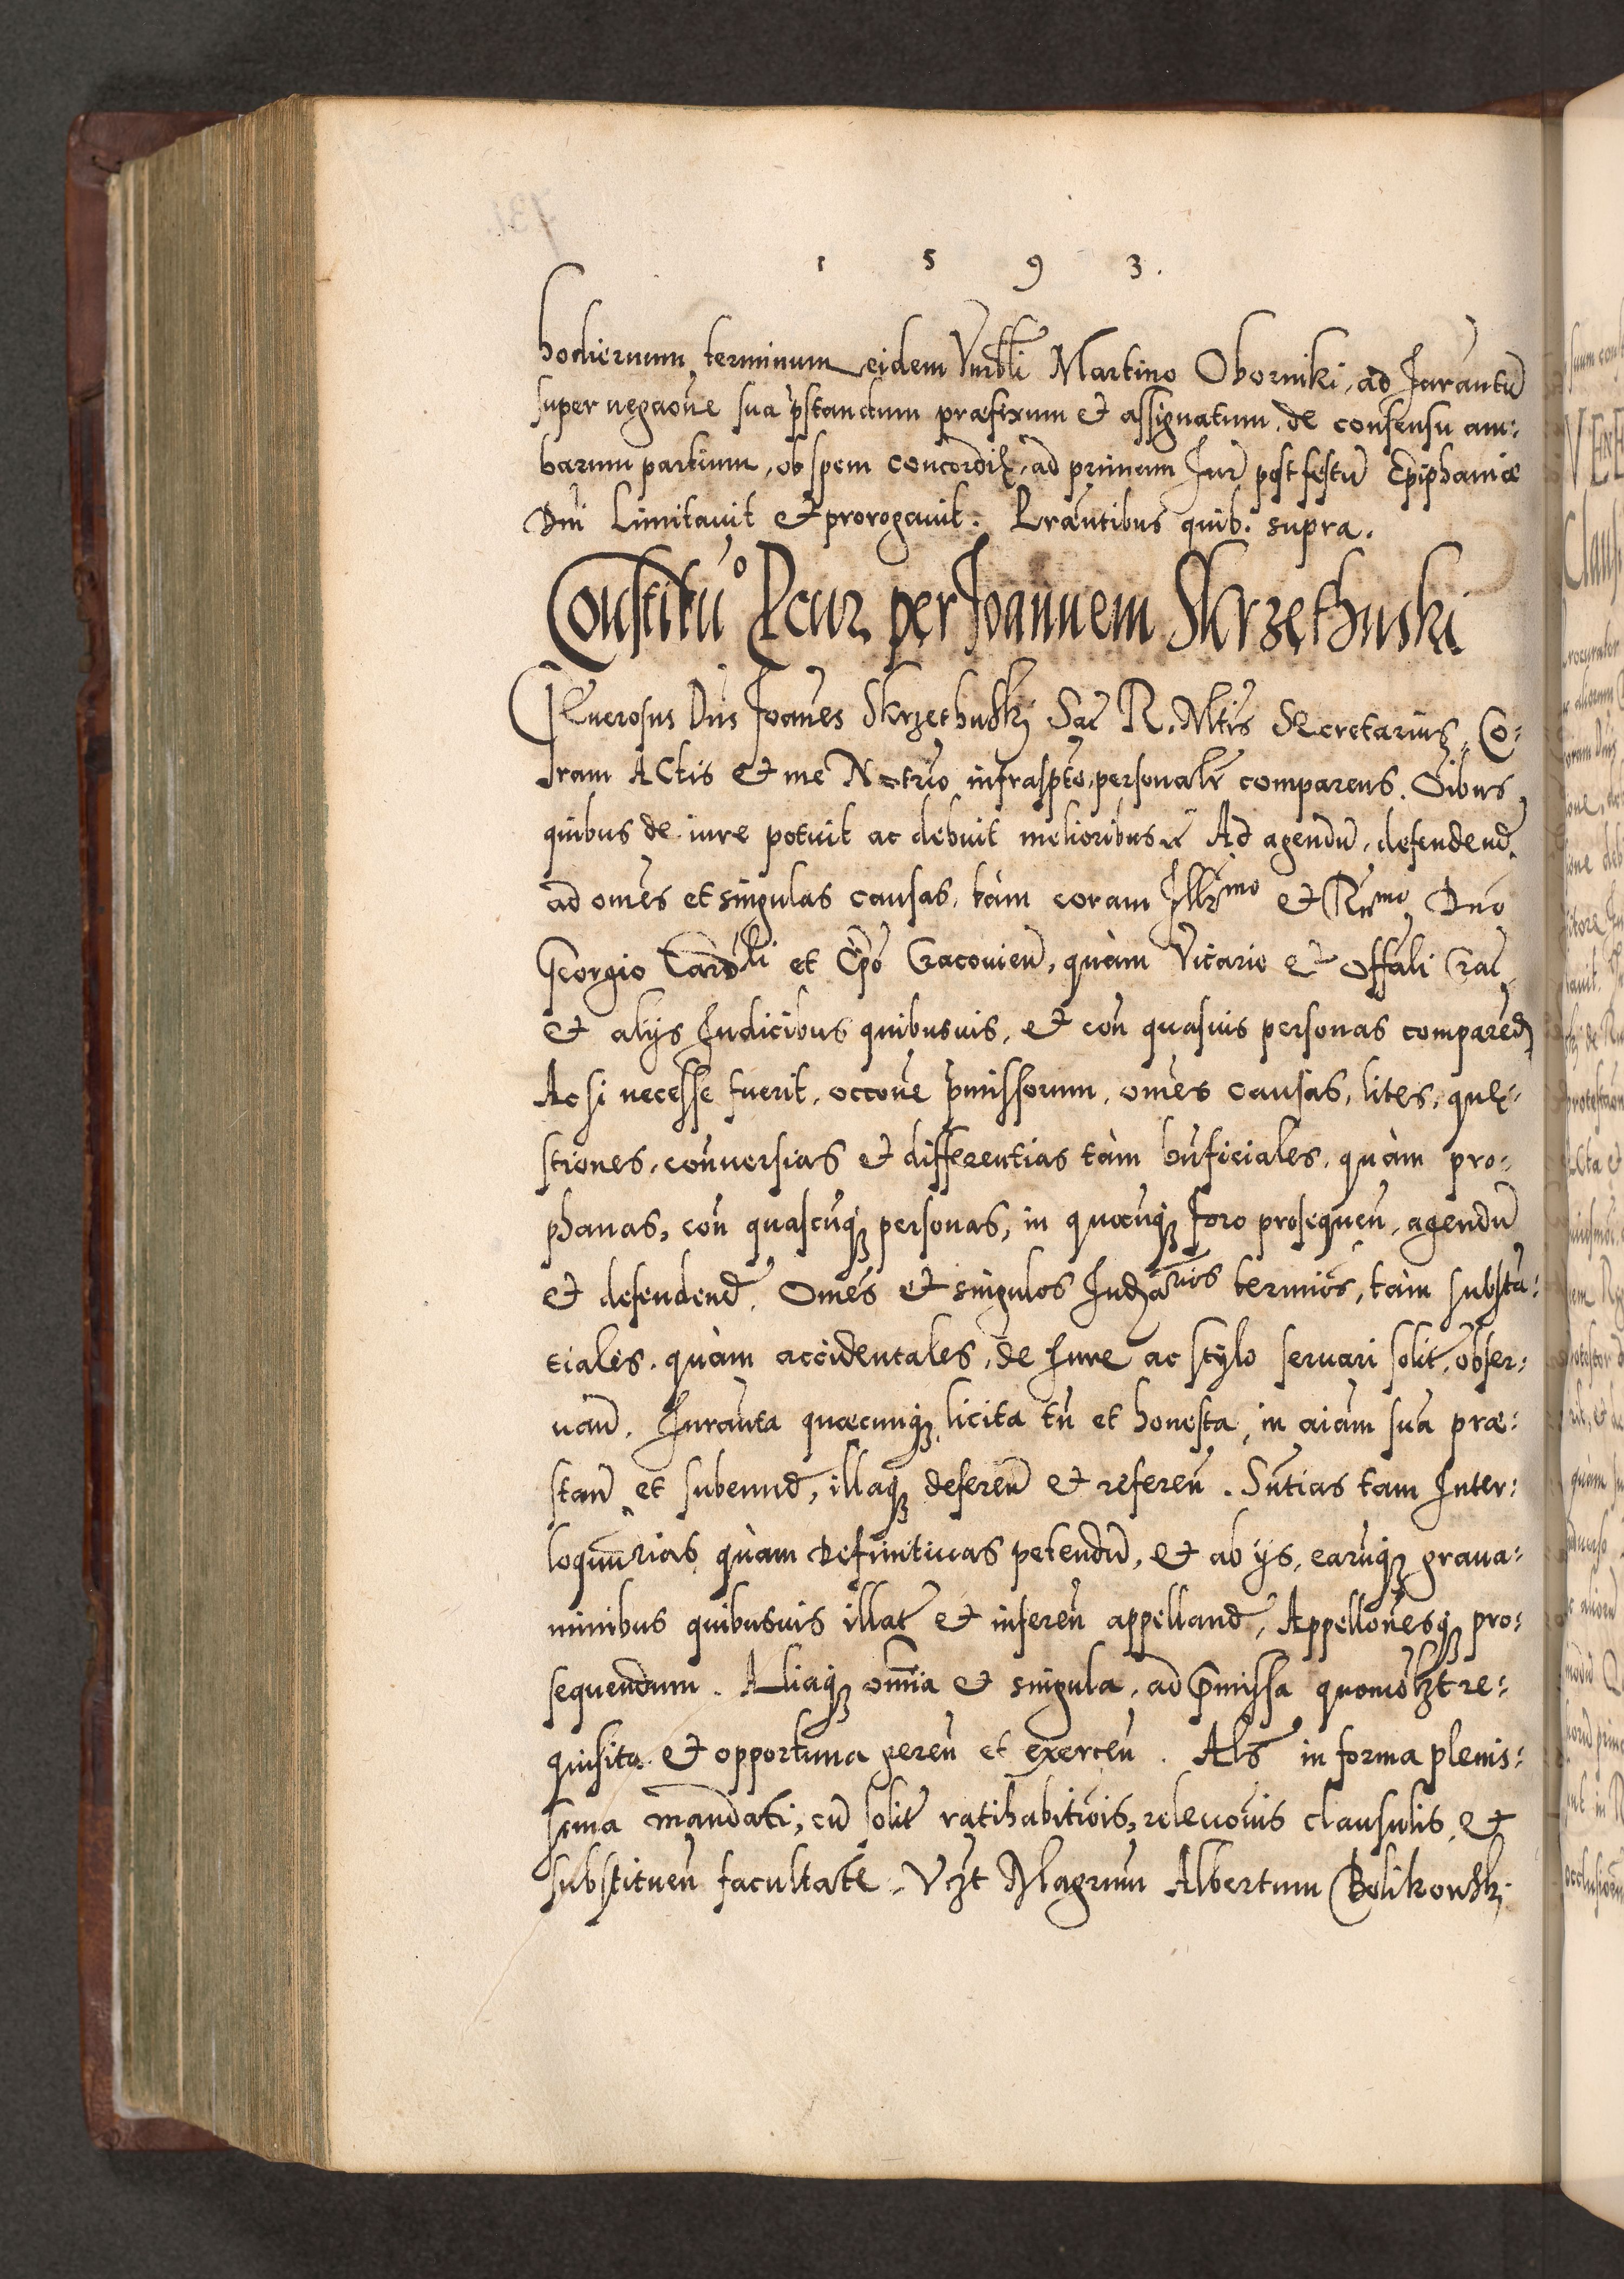 1 5 9 3.
hodiernum terminum eidem Vnrbli Martino Oborniki, ad Iurantũ
super negaoñe sua pstandum præfixum et assignatum, de consensu am=
barum partium, ob spem concordię, ad primam Iur post festũ Epiphaniæ
Dni Limitauit et prorogauit. Præntibus quib. supra.
Constituo Pcur per Ioannem Skrzethuski
GEnerosus Dns Ioañes Skrzethuskj Sac R. Mtis SEcretarius, Co=
ram ACtis et me Notrio infrasptō, personalr comparens. Oĩbus
quibus de iure potuit ac debuit melioribus et Ad agendũ, defendend,
ad omēs et singulas causas, tàm coram Illrmo et Rñmo Dno
Georgio Cardli et Ep̃o Cracouieñ, quàm Vicario et Offali Crac
et alijs Iudicibus quibusuis, et coñ quasuis personas comparend,
Ac si necesse fuerit, occoñe p̃missorum, omēs causas, lites, quę=
stiones, coñuersias et differentias tàm bñficiales, quàm pro=
phanas, coñ quascũq; personas, in quocũq; Foro prosequeñ, agendũ
et defendend. Omēs et singulos Iudꝫãrios terminos, tàm substã=
tiales, quàm accidentales, de Iure ac stylo seruari solit, obser=
uañ. Iuraṁta quæcunq; licita tñ et honesta, in aiam sua præ=
stañ et subeund, illaq; defereñ et refereñ. Sñtias tam Inter=
loqutirias quàm Definitiuas petendũ, et ab ijs, earũq; graua=
minibus quibusuis illat et infereñ appelland, Appelloñesq; pro=
sequendum. Aliaq; omñia et singula, ad p̃missa quomolꝫt re=
quisita et opportuna gereñ et exerceñ. Als in forma plenis=
sima mandati, cũ solit ratihabitiõis, releuoñis clausulis, et
substitueñ facultatē. Vꝫt Magrum Albertum Bolikowskj